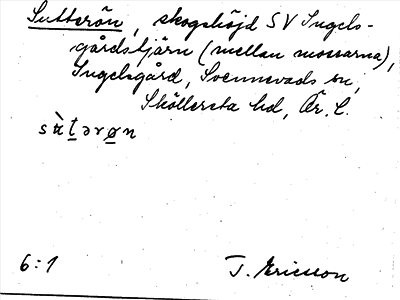 Sutterön, skogshöjd SV Ingels-
gårdstjärn (mellan mossarna),
Ingelsgård, Svennevads sn,
Sköllersta hd, Ör. l.
sùtərøn
6:1
T. Ericsson